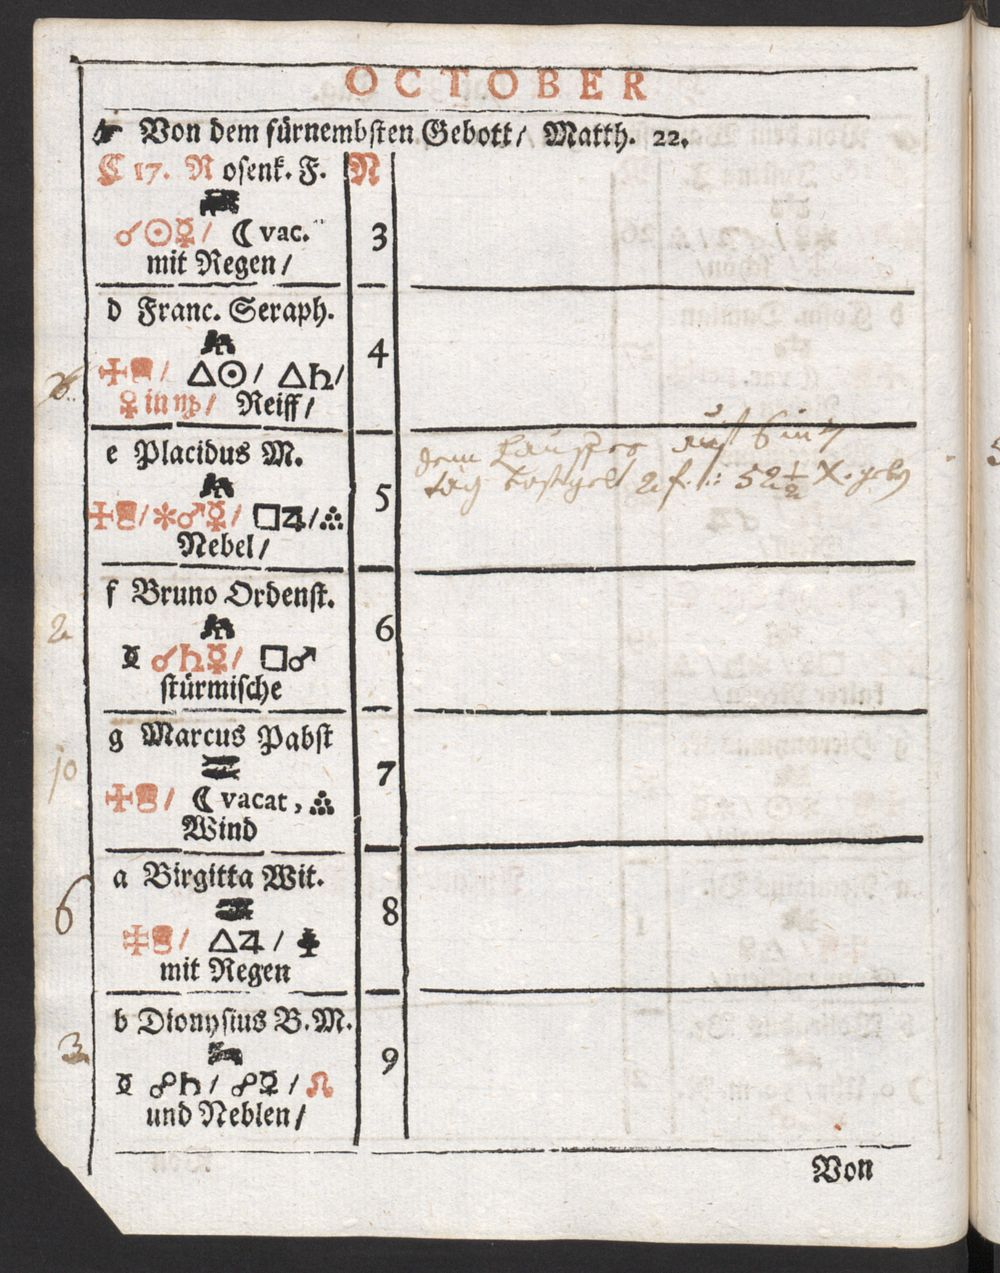 OCTOBER
Von dem fürnembsten Gebott/ Matth. 22.
C 17. Rosenk. F. N
☌☉☿/ ☾ vac. 3
mit Regen/
d Franc. Seraph.
4
△☉/ △♄/
♀ in ♍/ Reiff/
e Placidus M.
dem
5
✶♂☿/ □♃/
tag kostgelt 2 f. : 52 1/2 X. geben
Nebel/
f Bruno Ordenst.
2
6
☌♄☿/ □♂
stürmische
g Marcus Pabst
10
7
☾ vacat,
Wind
a Birgitta Wit.
6
8
△♃/
mit Regen
b Dionysius B. M.
3
9
☍♄/ ☍☿/ ☊
und Neblen/
Von